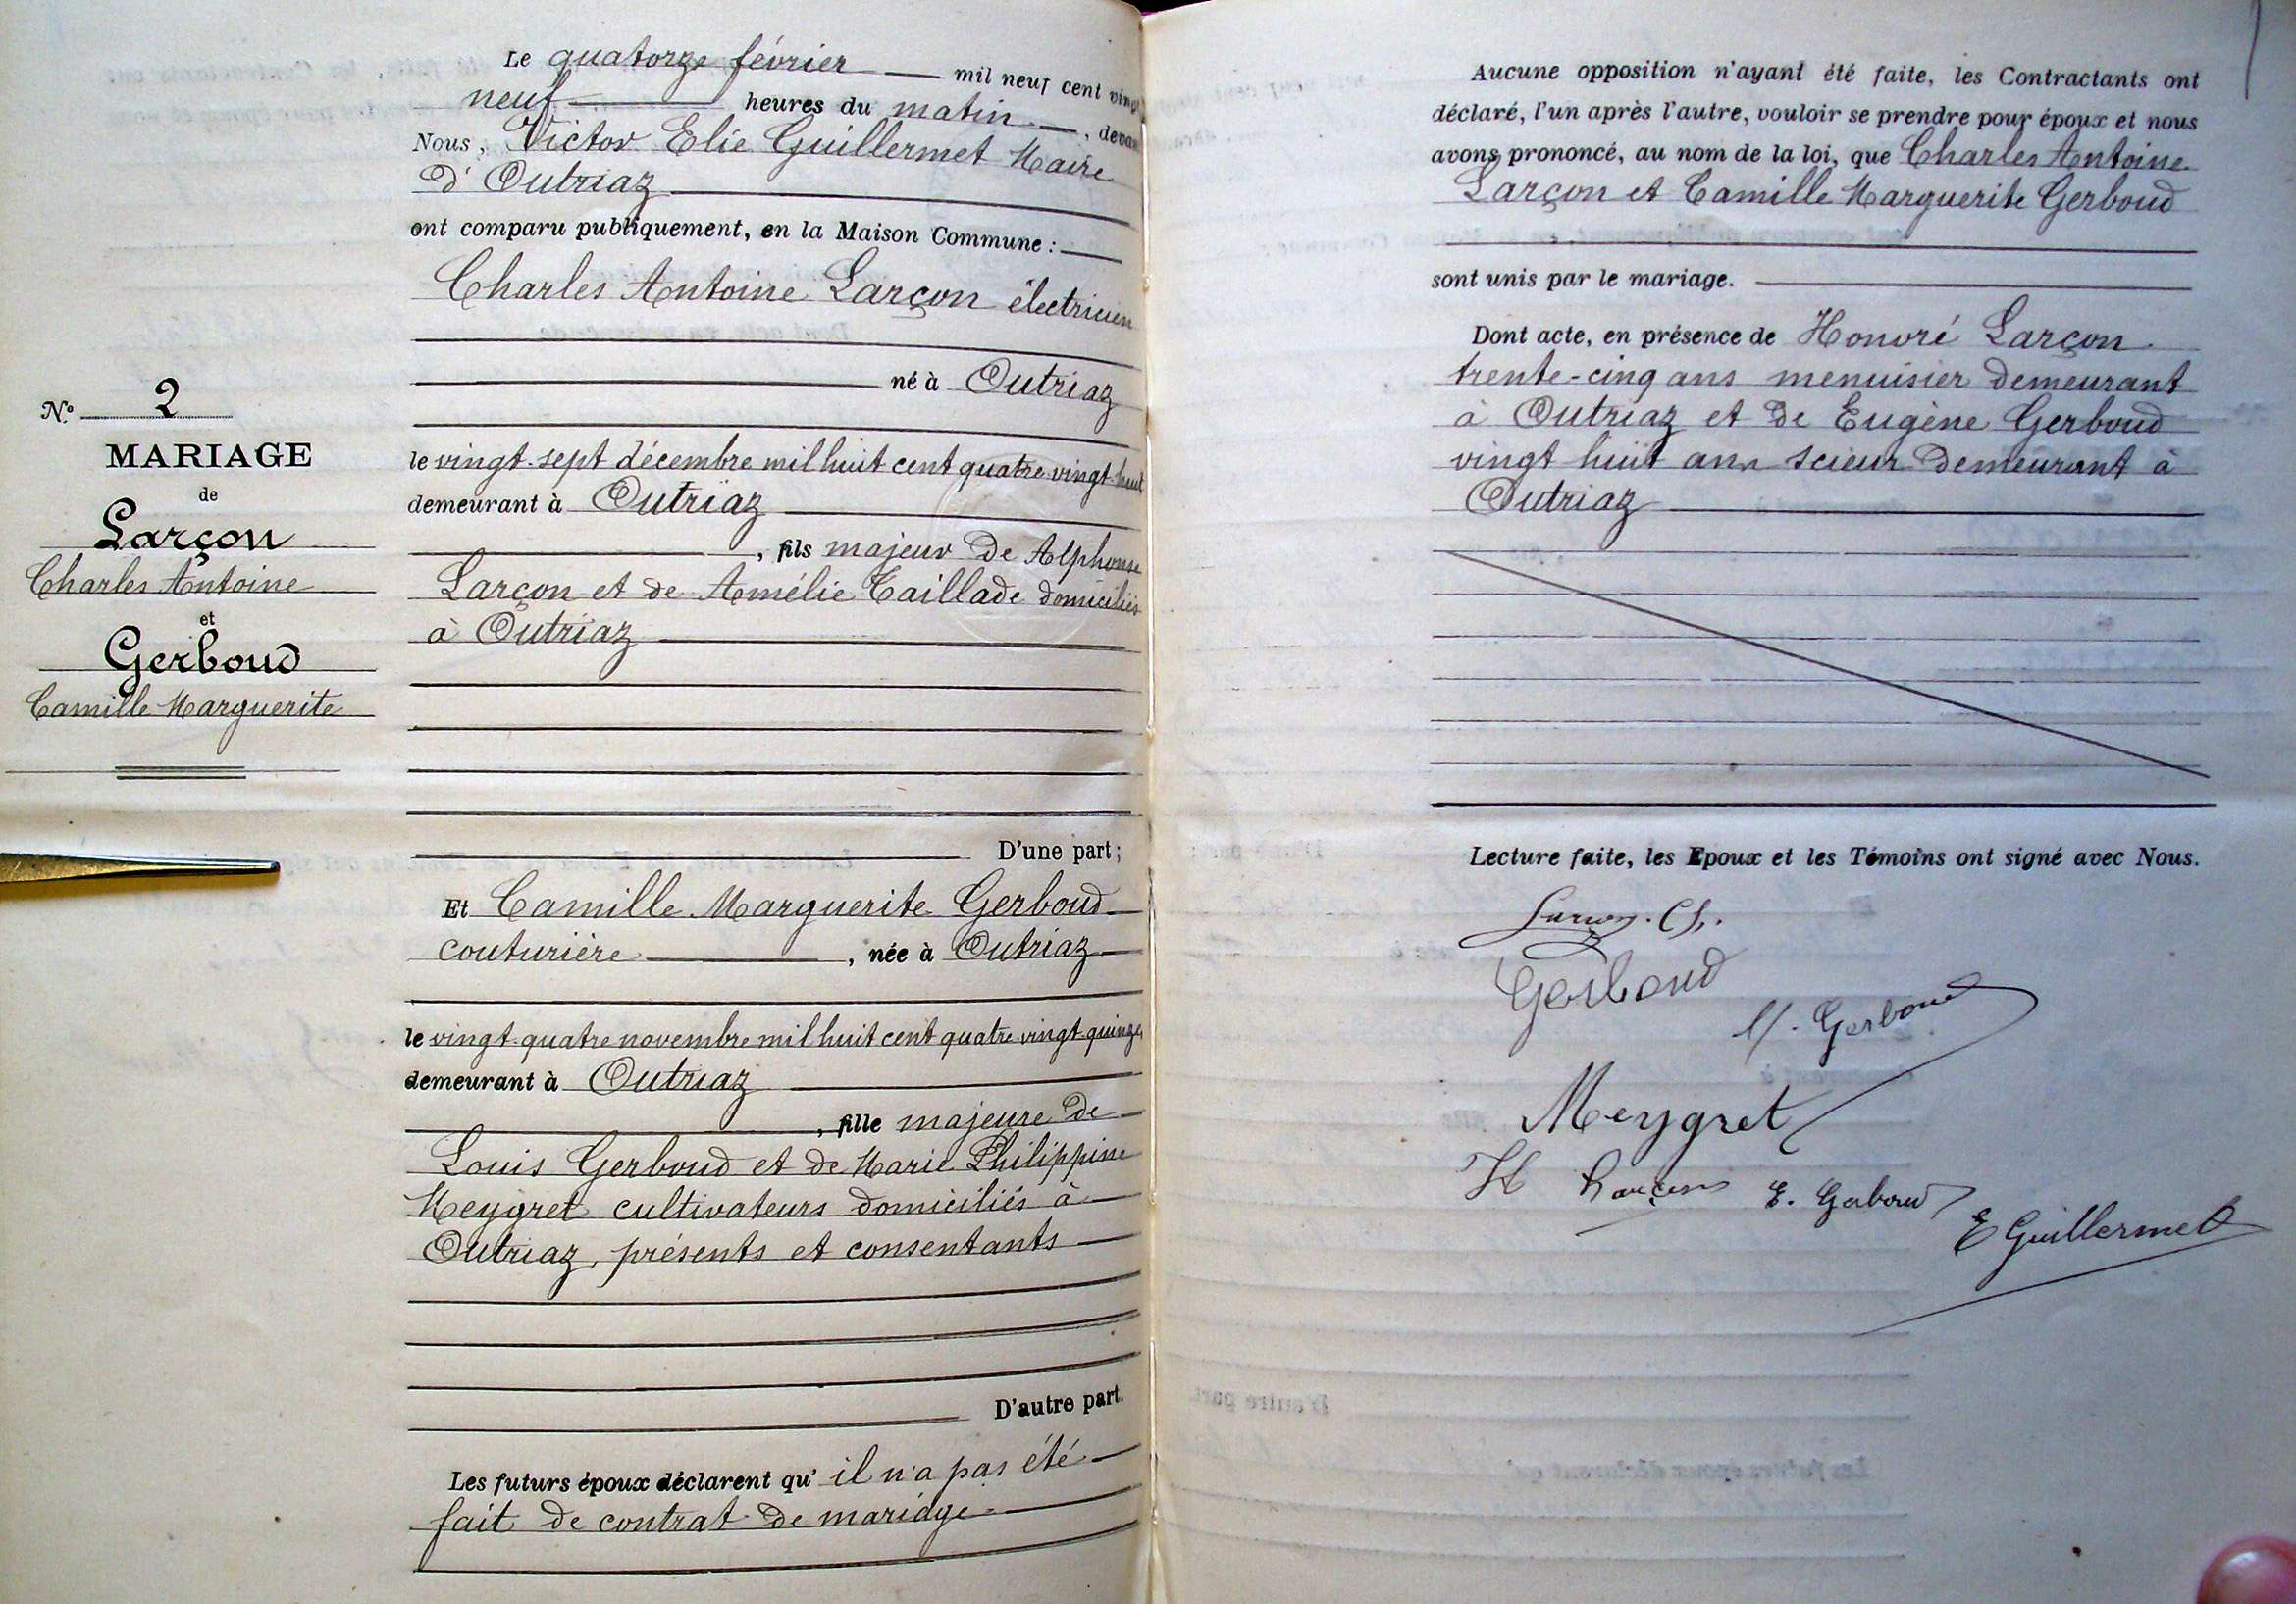 N° 2
MARIAGE
de
Larçon
Charles Antoine
et
Gerboud
Camille Marguerite
Le quatorze février mil neuf cent vingt
neuf heures du matin, devant
Nous, Victor Elie Guillermet Maire
d'Outriaz
ont comparu publiquement, en la Maison Commune :
Charles Antoine Larçon électricien
né à Outriaz
le vingt-sept décembre mil huit cent quatre-vingt-huit
demeurant à Outriaz
, fils majeur de Alphonse
Larçon et de Amélie Taillade domiciliés
à Outriaz
D'une part;
Et Camille Marguerite Gerboud
couturière, née à Outriaz
le vingt-quatre novembre mil huit cent quatre vingt-quinze
demeurant à Outriaz
, fille majeure de
Louis Gerboud et de Marie Philippine
Meygret cultivateurs domiciliés à
Outriaz, présents et consentants
D'autre part.
Les futurs époux déclarent qu'il n'a pas été
fait de contrat de mariage
Aucune opposition n'ayant été faite, les Contractants ont
déclaré, l'un après l'autre, vouloir se prendre pour époux et nous
avons prononcé, au nom de la loi, que Charles Antoine
Larçon et Camille Marguerite Gerboud
sont unis par le mariage.
Dont acte, en présence de Honoré Larçon
trente-cinq ans menuisier demeurant
à Outriaz et de Eugène Gerboud
vingt huit ans scieur demeurant à
Outriaz
Lecture faite, les Epoux et les Témoins ont signé avec Nous.
Larçon. Ch.
Gerboud
Gerboud
Meygret
H Larçon E. Gerboud
E Guillermet